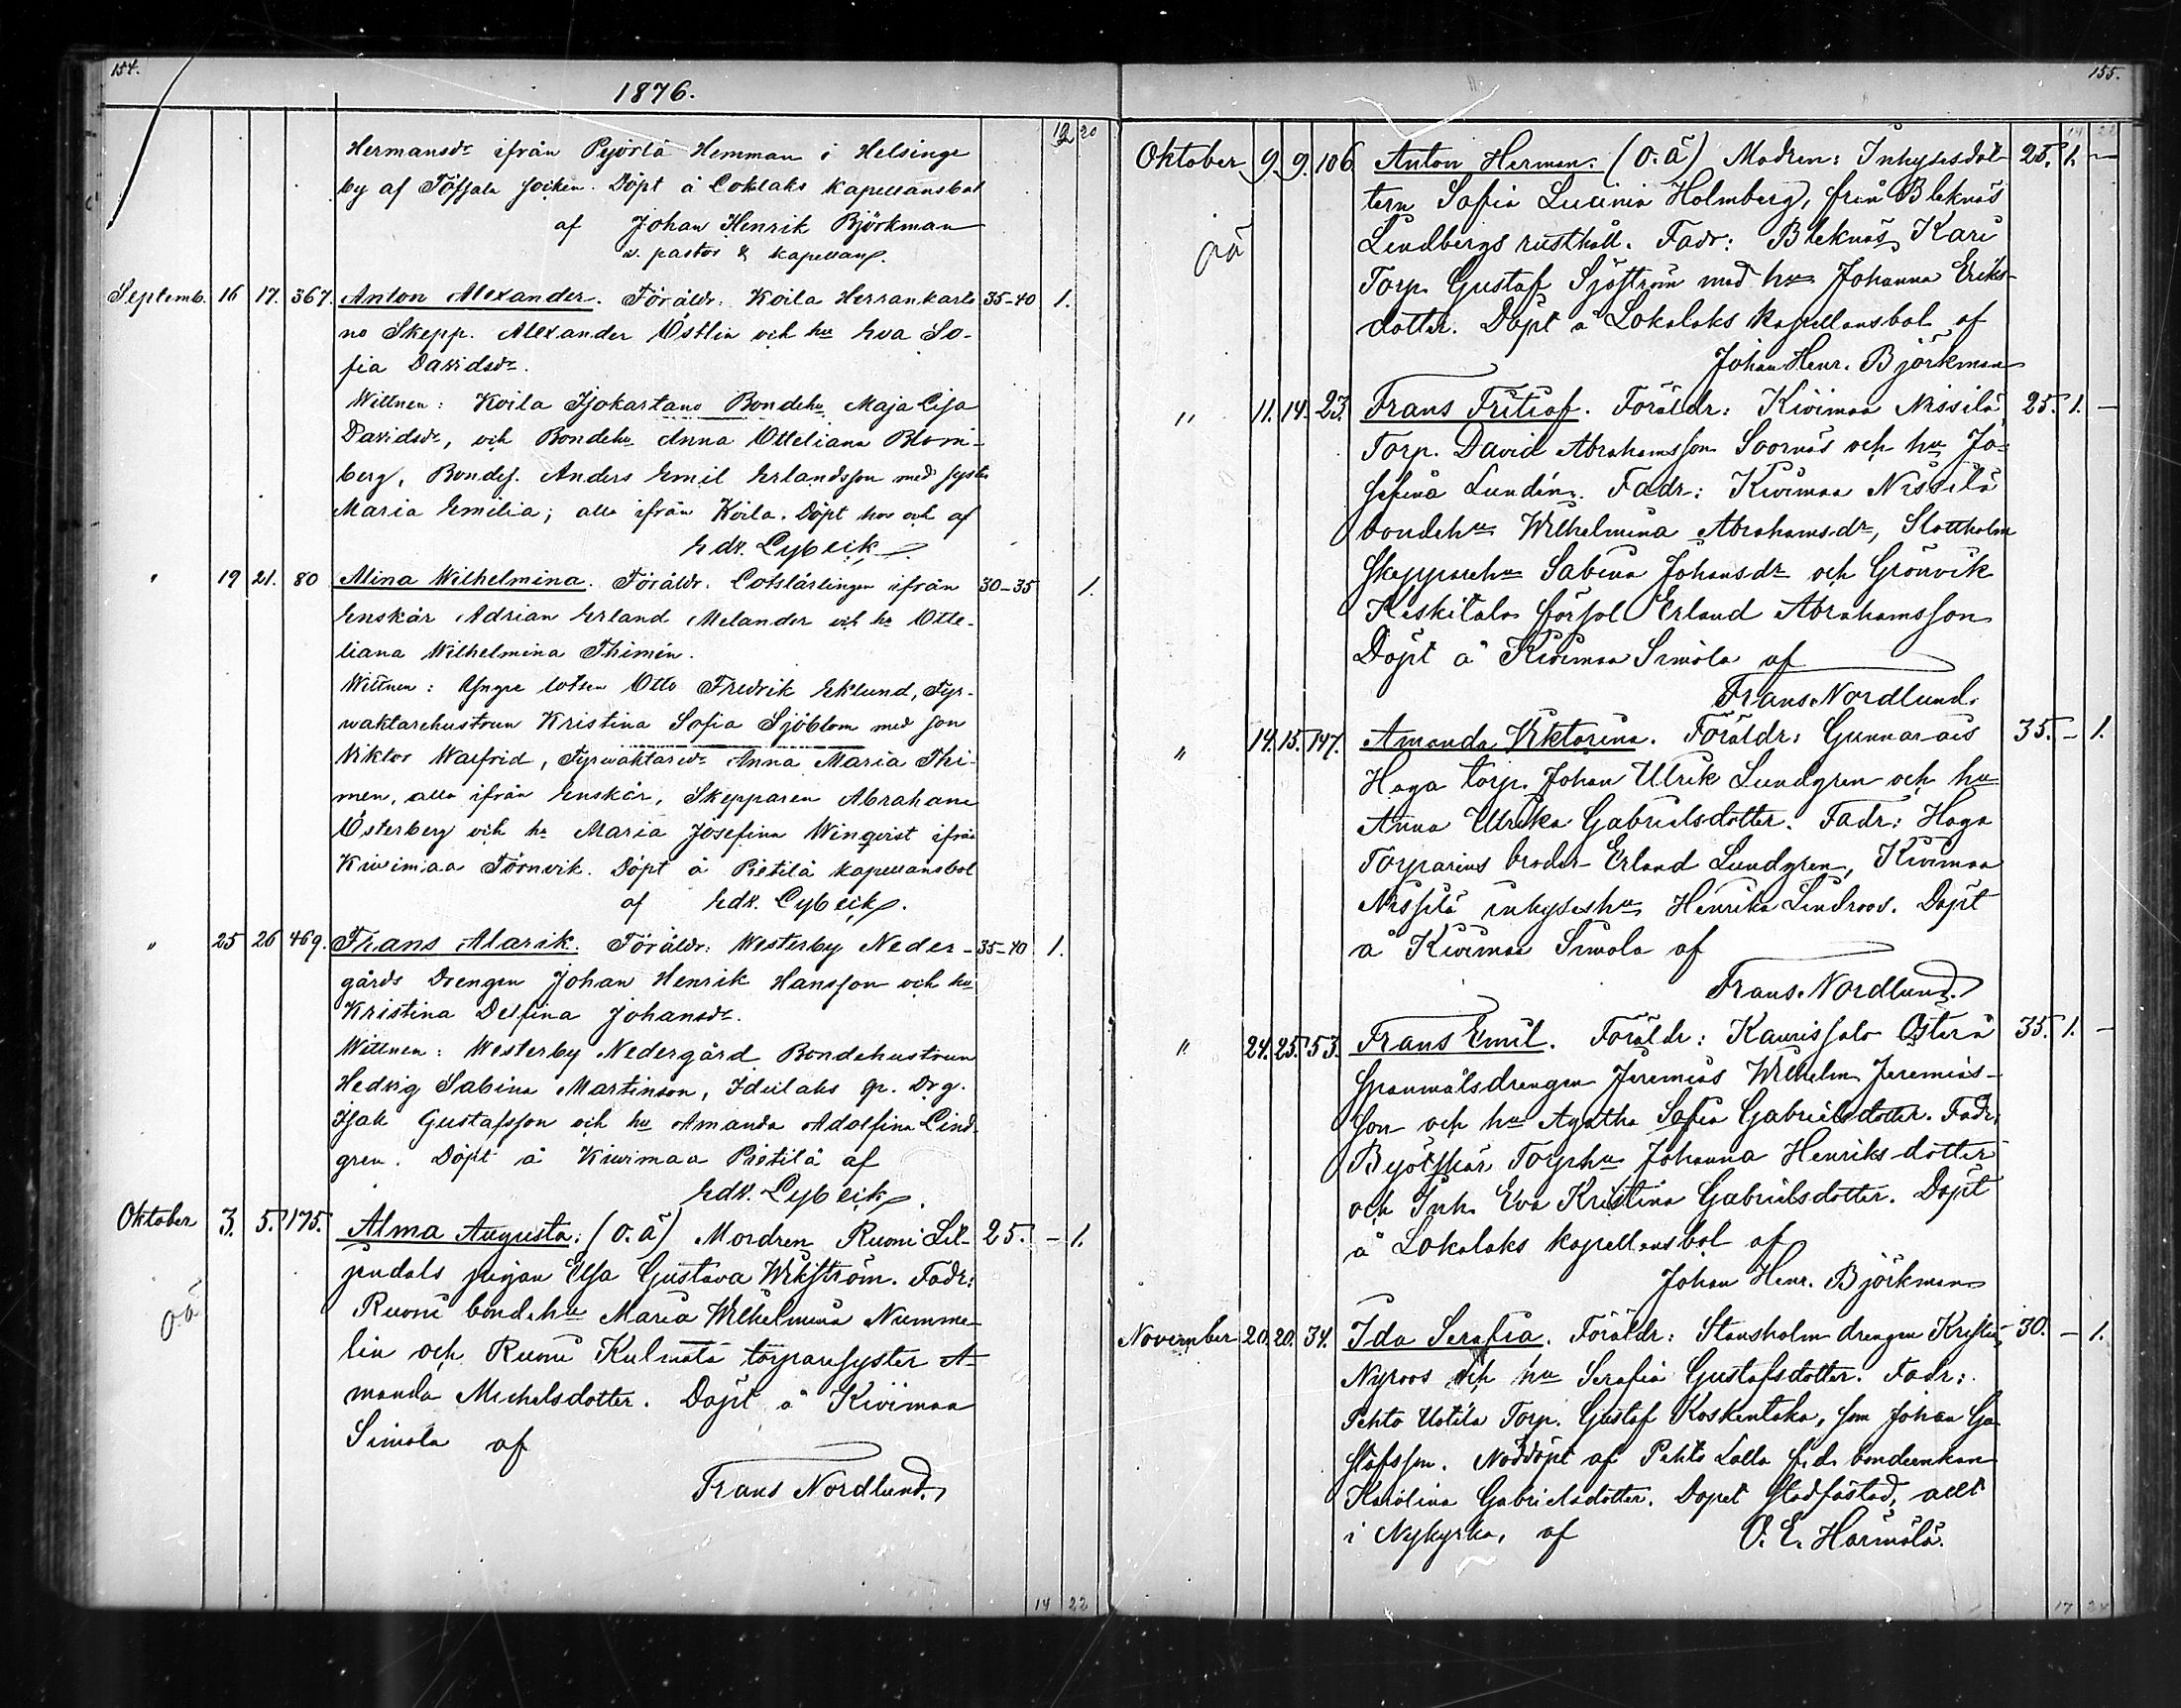 154.
1876.
12 20
Hermansdr ifrån Pyörlä Hemman i Helsinge
by af Töfsala socken. Döpt å Loklaks kapellansbol
af Johan Henrik Björkman
v. pastor & kapellan.
Septemb. 16 17. 367. Anton Alexander. Föräldr. Koila Herrankarta- 35-40 1.
no Skepp. Alexander Östlin och hu Eva So-
fia Davidsdr.
Wittnen: Koila Isokartano Bondehu Maja Lisa
Davidsdr, och Bondehu Anna Otteliana Blom-
berg, Bondes. Anders Emil Erlandsson med syster
Maria Emilia; alla ifrån Koila. Döpt af
Edv. Lybeck.
" 19 21. 80 Mina Wilhelmina. Föräldr. Lotslärlingen ifrån 30-35 1.
Enskär Adrian Erland Melander och hu Otte-
liana Wilhelmina Thimén.
Wittnen: Yngre lotsen Otto Fredrik Eklund, Fyr-
waktarehustrun Kristina Sofia Sjöblom med son
Viktor Walfrid, Fyrwaktaredr Anna Maria Thi-
men, alla ifrån Enskär, Skepparen Abraham
Österberg och hu Maria Josefina Winqvist ifrån
Kiwimaa Törnvik. Döpt å Pietilä kapellansbol
af Edv. Lybeck.
" 25 26 469. Frans Alarik. Föräldr: Westerby Neder- 35-40 1.
gårds Drengen Johan Henrik Hansson och hu
Kristina Delfina Johansdr.
Wittnen: Westerby Nedergård Bondehustrun
Hedvig Sabina Martinson, Idulaks gr. Drg.
Isak Gustafsson och hu Amanda Adolfina Lind-
gren. Döpt å Kiwimaa Pietilä af
Edv. Lybeck.
Oktober 3. 5. 175. Alma Augusta: (o.ä) Mordren Ruoni Lil- 25. - 1.
jendals pigan Elsa Gustava Wikström. Fadr:
oä Ruoni bondehu Maria Wilhelmina Numme-
lin och Ruoni Kulmata torparesyster A-
manda Michelsdotter. Döpt å Kivimaa
Simola af
Frans Nordlund.
14 22
155.
14 22
Oktober 9. 9. 106 Anton Herman: (o.ä) Modren: Inhysesdot- 25. 1. -
tern Sofia Lucinia Holmberg, från Bleknäs
Lindbergs rusthåll. Fadr: Bleknäs Kari
oä
Torp. Gustaf Sjöström med hu Johanna Eriks-
dotter. Döpt å Lokalaks kapellansbol af
Johan Henr. Björkman
" 11. 14. 23. Frans Fritiof. Föräldr: Kivimaa Nissilä 25. 1. -
Torp. David Abrahamsson Soornäs och hu Jo-
sefina Lundén. Fadr: Kivimaa Nissilä
bondehu Wilhelmina Abrahamsdr, Slottholm
Skepparehu Sabina Johansdr och Grönvik
Keskitalo Erland Abrahamsson
Döpt å Kivimaa Simola af
Frans Nordlund.
" 14. 15. 147. Amanda Viktorina. Föräldr: Gunnarais 35. - 1.
Haga torp. Johan Ulrik Lundgren och hu
Anna Ulrika Gabrielsdotter. Fadr: Haga
Torparens broder Erland Lundgren, Kivimaa
Nissilä inhyseshu Henrika Lindroos. Döpt
å Kivimaa Simola af
Frans Nordlund.
" 24. 25. 53. Frans Emil. Föräldr: Kaurissalo Österå 35. 1. -
Spanmålsdrengen Jeremias Wilhelm Jeremias-
son och hu Agatha Sofia Gabrielsdotter. Fadr:
Torphu Johanna Henriksdotter
och Inh. Eva Kristina Gabrielsdotter. Döpt
å Lokalaks kapellansbol af
Johan Henr. Björkman
November 20. 20. 34. Ida Serafia. Föräldr: Stansholm drengen 30. - 1.
Nyroos och hu Serafia Gustafsdotter. Fadr:
Pehto Uotila Torp. Gustaf Koskentaka, son Johan Gu-
stafsson. Nöddöpt af Pehto Lalla f.d. bondeenkan
Karolina Gabrielsdotter. Dopet stadfästad, allt
i Nykyrka, af O. E. Härmälä.
17 24